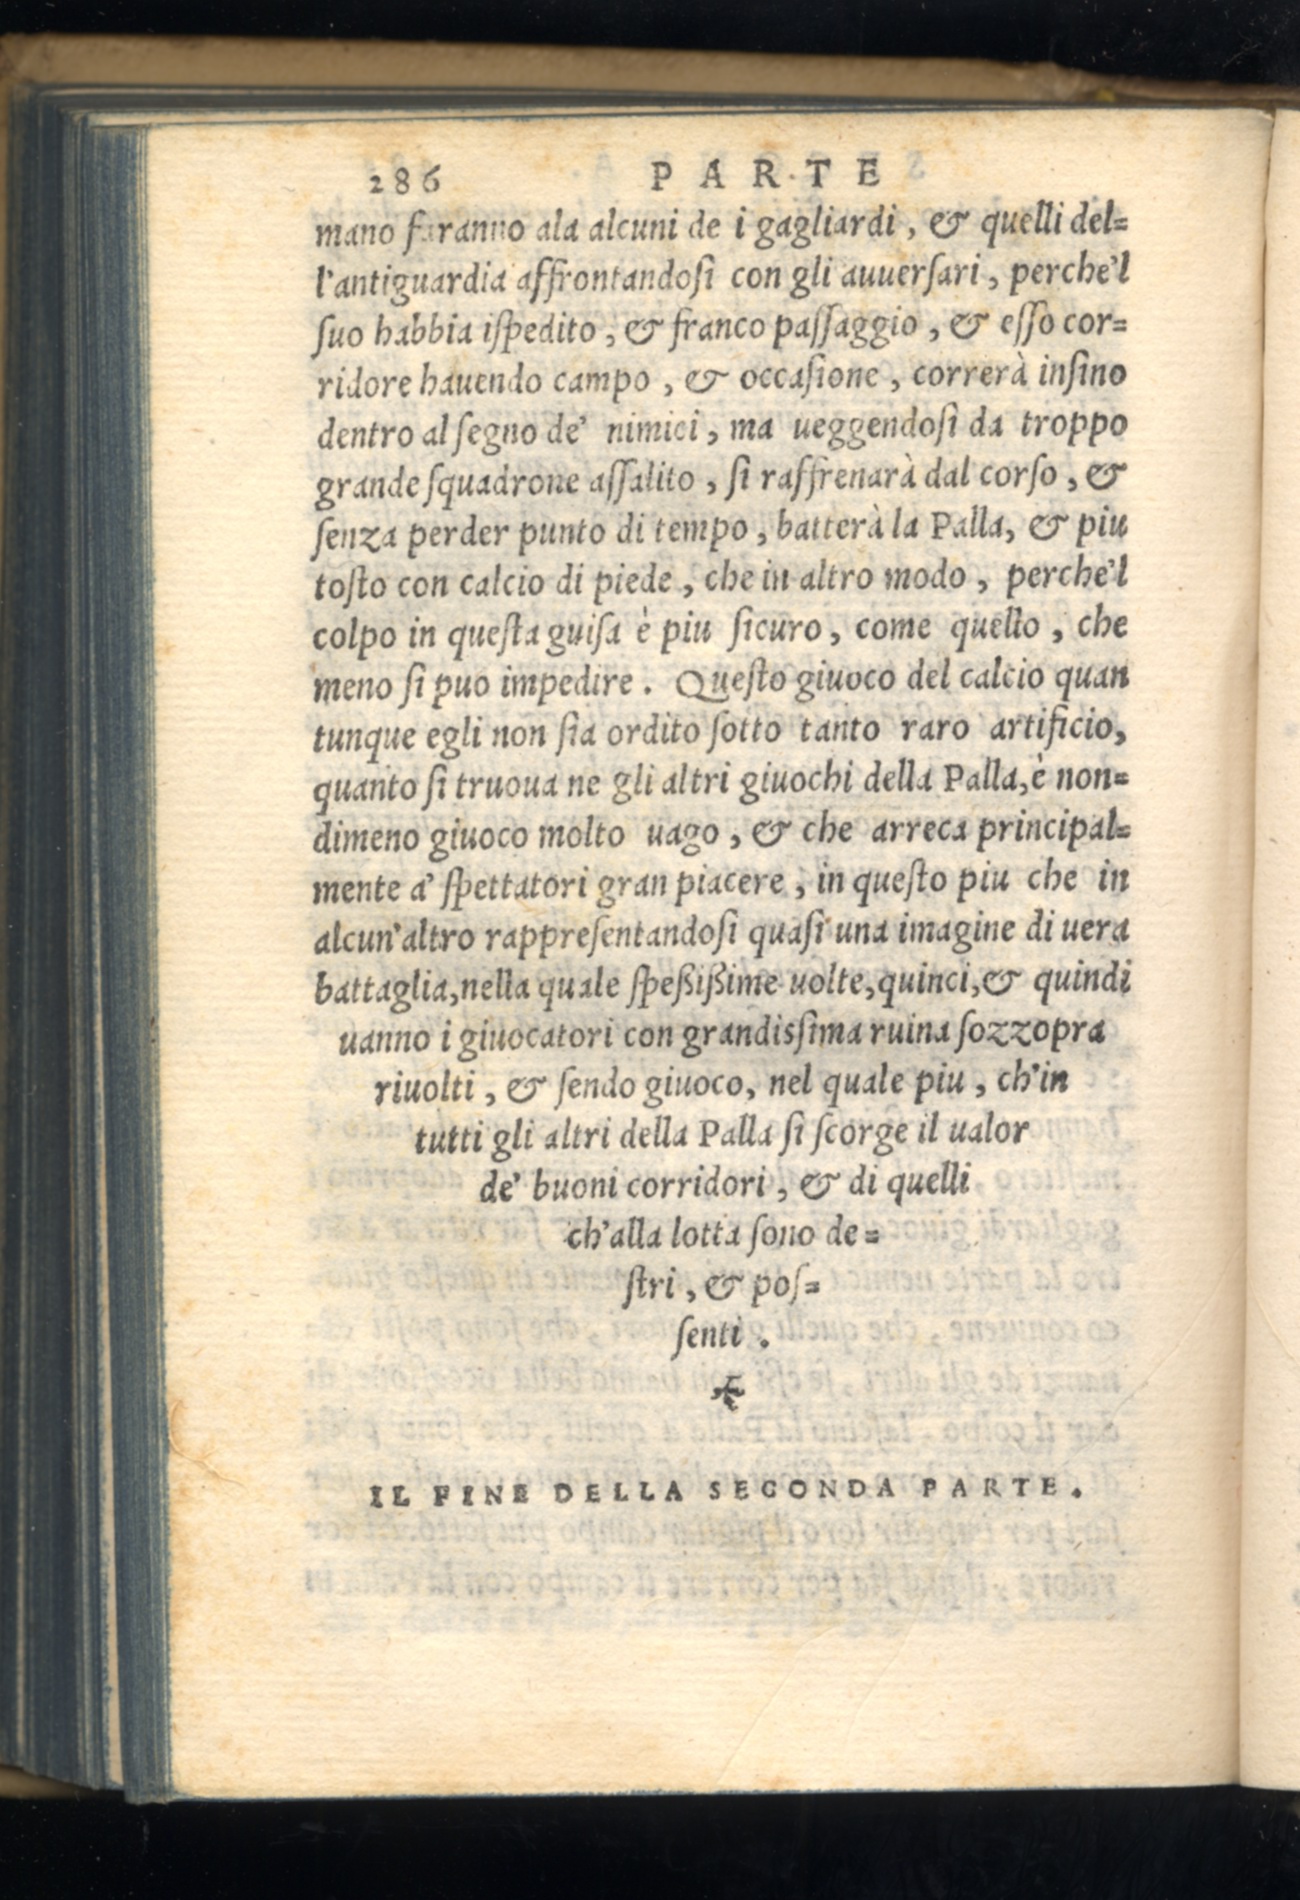 286 PARTE
mano faranno ala alcuni de i gagliardi, & quelli del=
l'antiguardia affrontandoſi con gli auuerſari, perche'l
ſuo habbia iſpedito, & franco paſſaggio, & eſſo cor=
ridore hauendo campo, & occaſione, correrà inſino
dentro al ſegno de' nimici, ma ueggendoſi da troppo
grande ſquadrone aſſalito, ſi raffrenarà dal corſo, &
ſenza perder punto di tempo, batterà la Palla, & piu
toſto con calcio di piede, che in altro modo, perche'l
colpo in queſta guiſa è piu ſicuro, come quello, che
meno ſi puo impedire. Queſto giuoco del calcio quan
tunque egli non ſia ordito ſotto tanto raro artificio,
quanto ſi truoua ne gli altri giuochi della Palla, è non=
dimeno giuoco molto uago, & che arreca principal=
mente a' ſpettatori gran piacere, in queſto piu che in
alcun'altro rappreſentandoſi quaſi una imagine di uera
battaglia, nella quale ſpeßißime uolte, quinci, & quindi
uanno i giuocatori con grandisſima ruina ſozzopra
riuolti, & ſendo giuoco, nel quale piu, ch'in
tutti gli altri della Palla ſi ſcorge il ualor
de' buoni corridori, & di quelli
ch'alla lotta ſono de=
ſtri, & poſ=
ſenti.
IL FINE DELLA SECONDA PARTE.